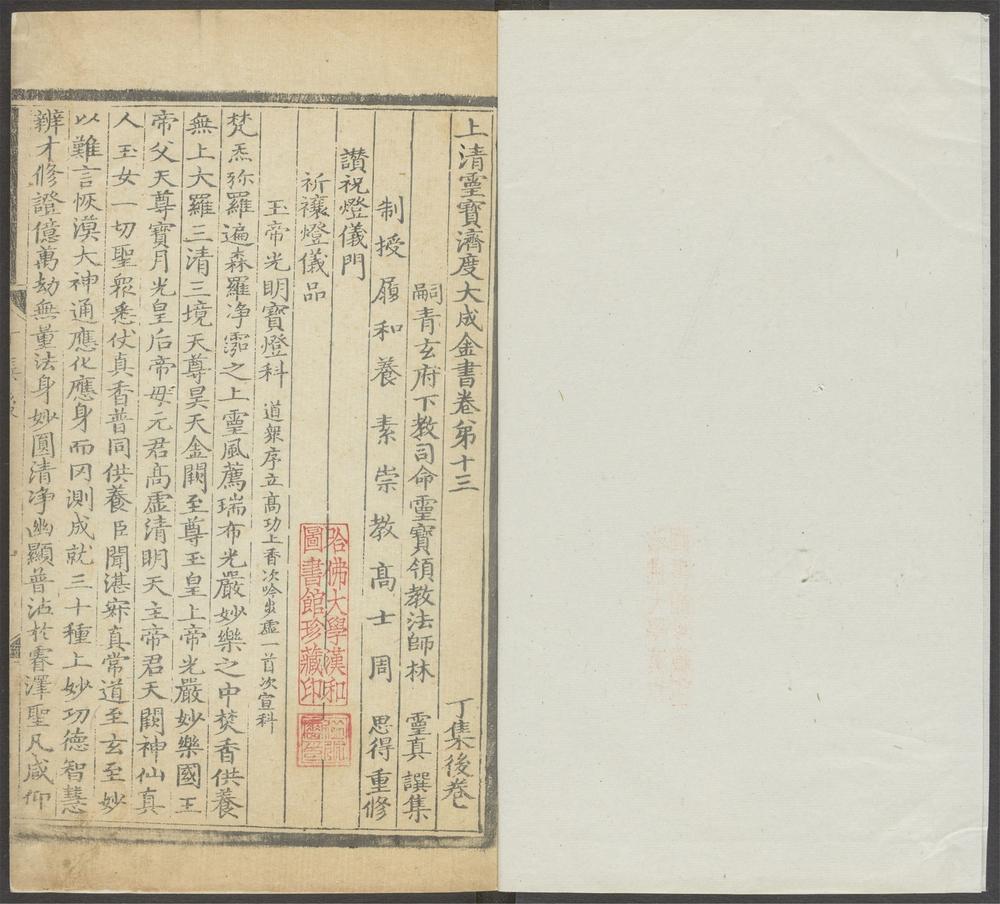 上清靈寶濟度大成金書卷第十三　丁集後卷
嗣青玄府下教司命靈寶領教法師林　靈真　譔集
制授履和養素崇教高士周　思得重修
讚祝燈儀門
祈禳燈儀品
玉帝光明寶燈科　道衆序立高功上香次吟步虛一首次宣科
梵炁弥羅遍森羅净𣽂之上靈風薦瑞布光嚴妙樂之中焚香供養
無上大羅三清三境天尊昊天金闕至尊玉皇上帝光嚴妙樂國王
帝父天尊寶月光皇后帝母元君高虛清明天主帝君天闕神仙真
人玉女一切聖衆悉仗真香普同供養臣聞湛寂真常道至玄至妙
以難言恢漠大神通應化應身而罔測成就三十種上妙功德智慧
辨才修證億萬劫無量法身妙圓清净幽顯普沾於睿澤聖凡咸仰
哈佛大學漢和
圖書館珍藏印